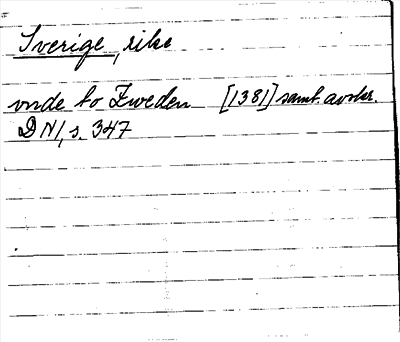 Sverige, rike
vnde to Zweden [1381] samt. avskr.
DN 1, s. 347